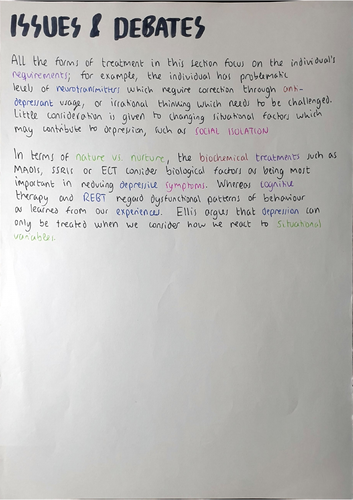 ISSUES & DEBATES
All the forms of treatment in this section focus on the individual's
requirements; for example, the individual has problematic
levels of neurotransmitters which require correction through anti-
depressant usage, or irrational thinking which need to be challenged.
Little consideration is given to changing situational factors which
may contribute to depression, such as SOCIAL ISOLATION
In terms of nature vs. nurture, the biochemical treatments such as
MAOIs, SSRIs or ECT consider biological factors as being most
important in reducing depressive symptoms. Whereas cognitive
therapy and REBT regard dysfunctional patterns of behaviour
as learned from our experiences. Ellis argues that depression can
only be treated when we consider how we react to situational
variables.